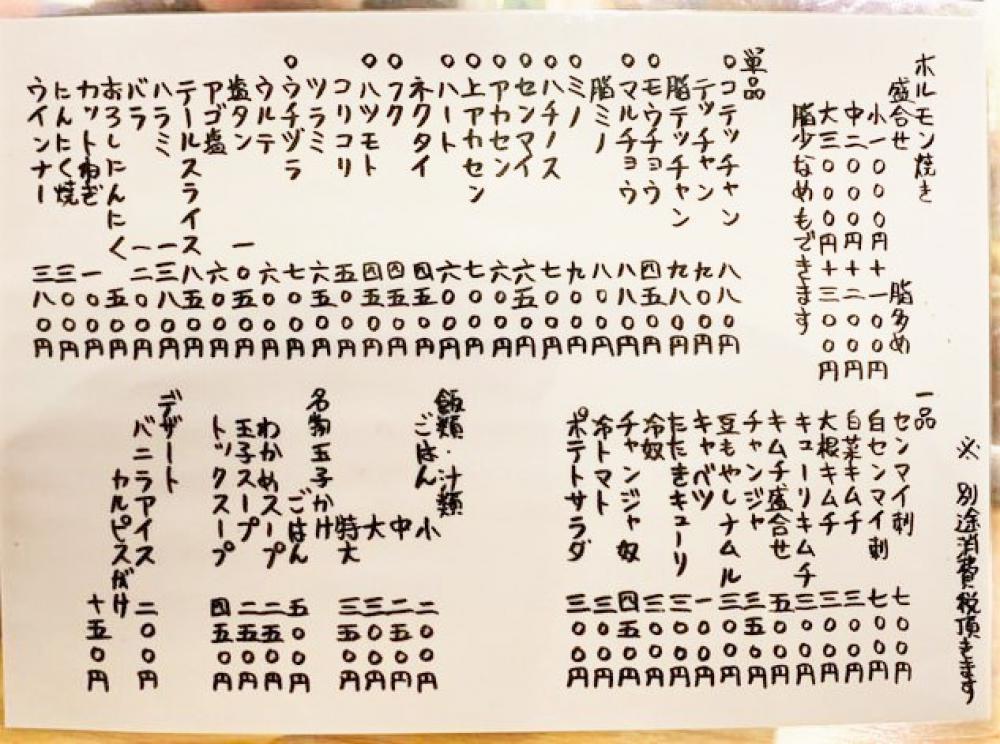 ホルモン焼き
盛合せ　脂多め
小一〇〇〇円+一〇〇円
中二〇〇〇円+二〇〇円
大三〇〇〇円+三〇〇円
脂少なめもできます
単品
○コテッチャン　八八〇円
テッチャン　九〇〇円
脂テッチャン　九八〇円
○モウチョウ　四五〇円
○マルチョウ　八八〇円
脂ミノ　八〇〇円
○ミノ　九〇〇円
○ハチノス　七〇〇円
○センマイ　六五〇円
○アカセン　六〇〇円
○上アカセン　七〇〇円
○ハート　六〇〇円
ネクタイ　四五〇円
○フク　四五〇円
○ハツモト　四五〇円
コリコリ　五〇〇円
ツラミ　六五〇円
○ウチヅラ　七〇〇円
ウルテ　六〇〇円
塩タン　一〇五〇円
アゴ塩　六〇〇円
テールスライス　八五〇円
ハラミ　一三八〇円
バラ　一二〇〇円
おろしにんにく　五〇円
カットねぎ　一〇〇円
にんにく焼　三〇〇円
ウインナー　三八〇円
※別途消費税頂きます
一品
センマイ刺　七〇〇円
白センマイ刺　七〇〇円
白菜キムチ　三〇〇円
大根キムチ　三〇〇円
キューリキムチ　三〇〇円
キムチ盛合せ　五〇〇円
チャンジャ　三五〇円
豆もやしナムル　三〇〇円
キャベツ　一〇〇円
たたきキューリ　三〇〇円
冷奴　三〇〇円
チャンジャ奴　四五〇円
冷トマト　三〇〇円
ポテトサラダ　三〇〇円
飯類・汁類
ごはん　小　二〇〇円
中　二五〇円
大　三〇〇円
特大　三五〇円
名物玉子かけ
ごはん　五〇〇円
わかめスープ　二五〇円
玉子スープ　二五〇円
トックスープ　四五〇円
デザート
バニラアイス　二〇〇円
カルピスがけ
+五〇円